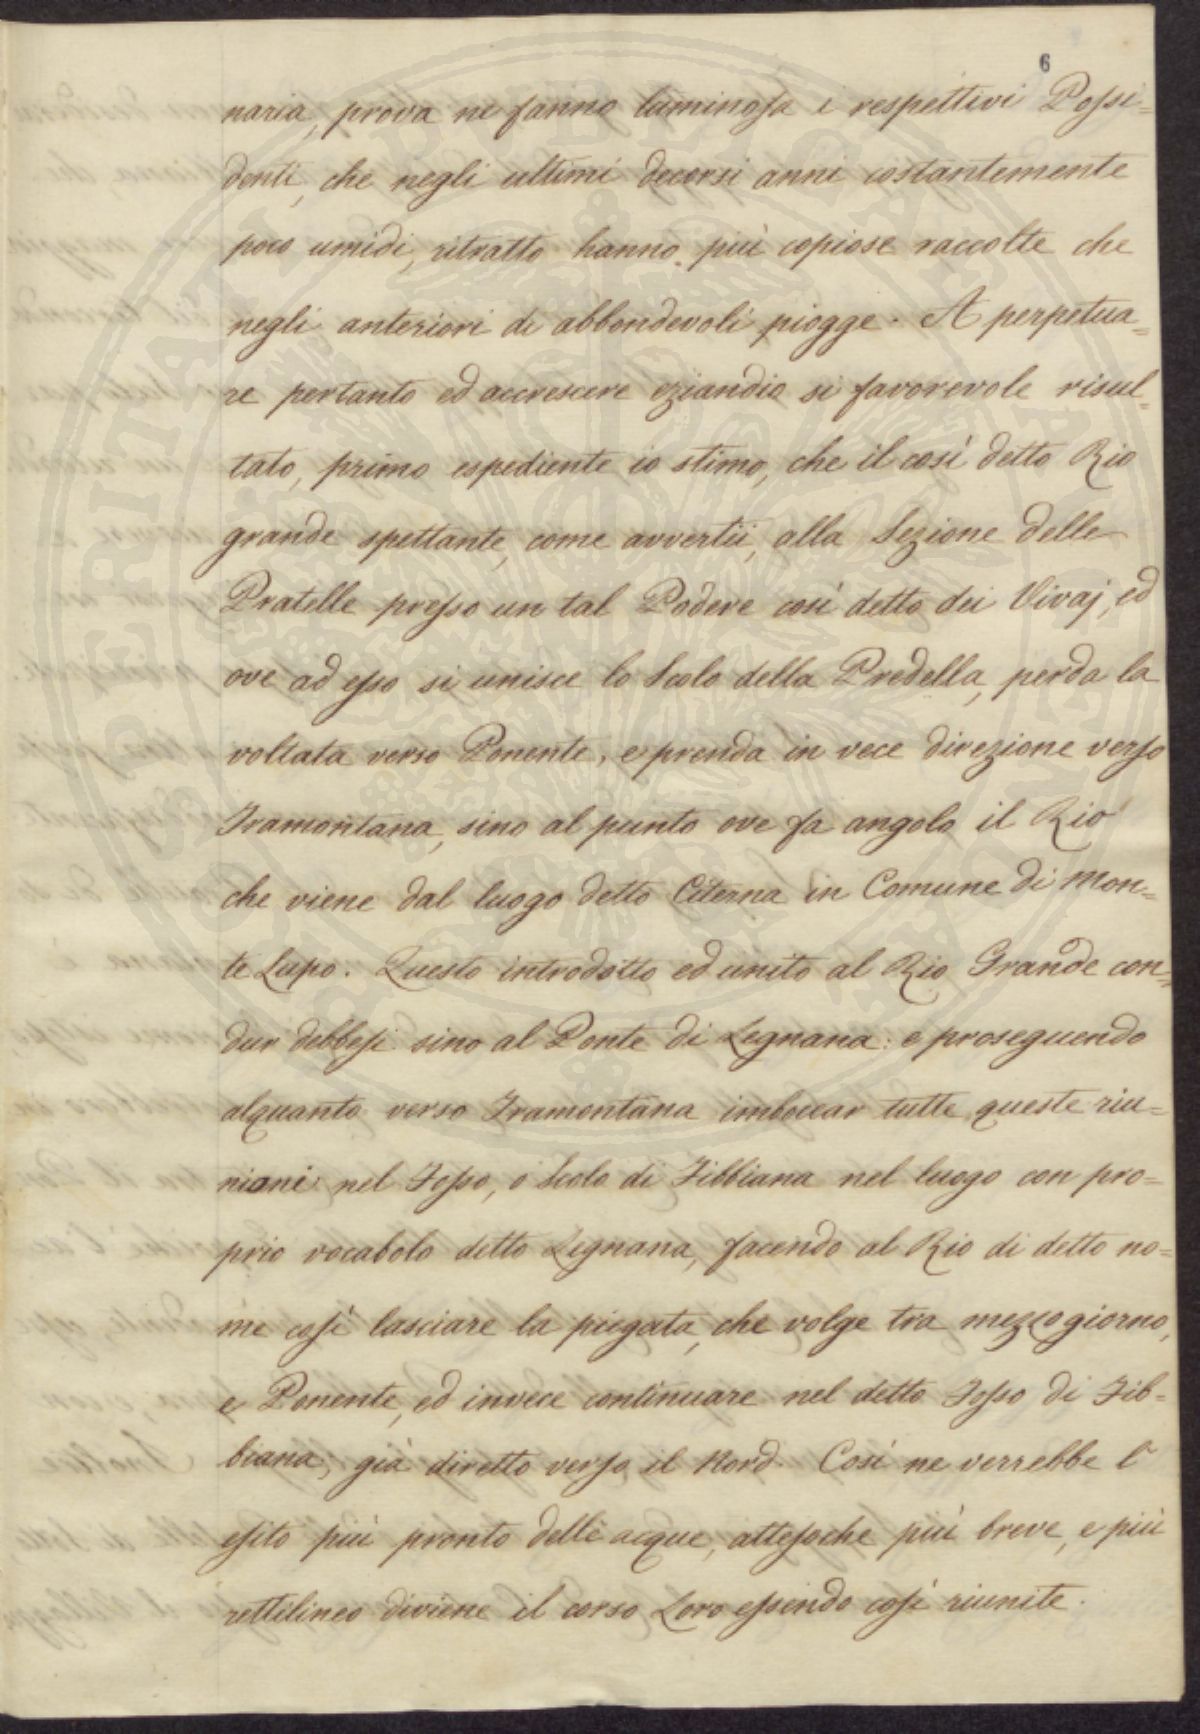 6
naria, prova ne fanno luminosa i respettivi Possi=
denti, che negli ultimi decorsi anni costantemente
poco umidi, ritratto hanno più copiose raccolte che
negli anteriori di abbondevoli piogge. A perpetua=
re pertanto ed accrescere eziandio sì favorevole risul=
tato, primo espediente io stimo, che il così detto Rio
grande spettante, come avvertii, alla Sezione delle
Pratelle presso un tal Podere così detto dei Vivaj, ed
ove ad esso si unisce lo Scolo della Predella, perda la
voltata verso Ponente, e prenda in vece direzione verso
Tramontana, sino al punto ove fa angolo il Rio
che viene dal luogo detto Citerna in Comune di Mon=
te Lupo. Questo introdotto ed unito al Rio Grande con=
dur debbesi sino al Ponte di Legnana: e proseguendo
alquanto verso Tramontana imboccar tutte queste riu=
nioni nel Fosso, o Scolo di Fibbiana nel luogo con pro=
prio vocabolo detto Legnana, facendo al Rio di detto no=
me così lasciare la piegata, che volge tra mezzogiorno,
e Ponente, ed invece continuare nel detto Fosso di Fib=
biana, già diretto verso il Nord. Così ne verrebbe l'
esito più pronto delle acque, attesoche più breve, e più
rettilineo diviene il corso Loro essendo così riunite.
PROSPERITATI PUBLICAE AUGENDAE